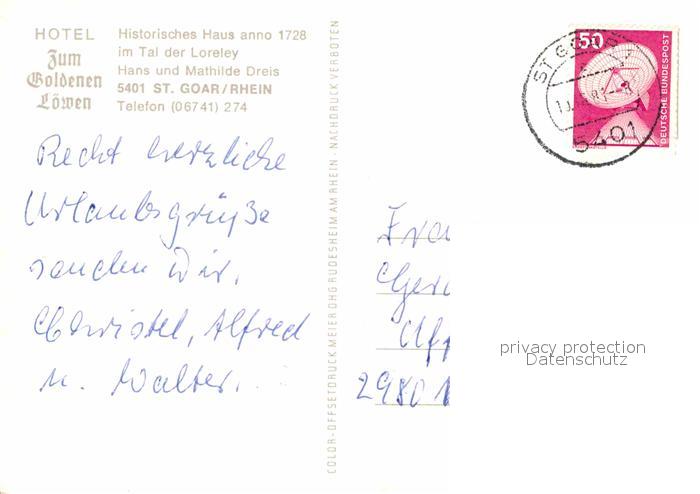 HOTEL
Zum
Goldenen
Löwen
Historisches Haus anno 1728
im Tal der Loreley
Hans und Mathilde Dreis
5401 ST. GOAR/RHEIN
Telefon (06741) 274
Recht herzliche
Urlaubsgrüße
senden Dir,
Christel, Alfred
u. Walter.
COLOR-OFFSETDRUCK MEIER OHG RÜDESHEIM AM RHEIN · NACHDRUCK VERBOTEN
ST. GOAR
5401
50
DEUTSCHE BUNDESPOST
Fra
Ger
2980 1
privacy protection
Datenschutz